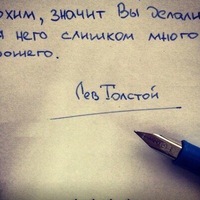 охим, значит Вы делали
я него слишком много
рошего.
Лев Толстой